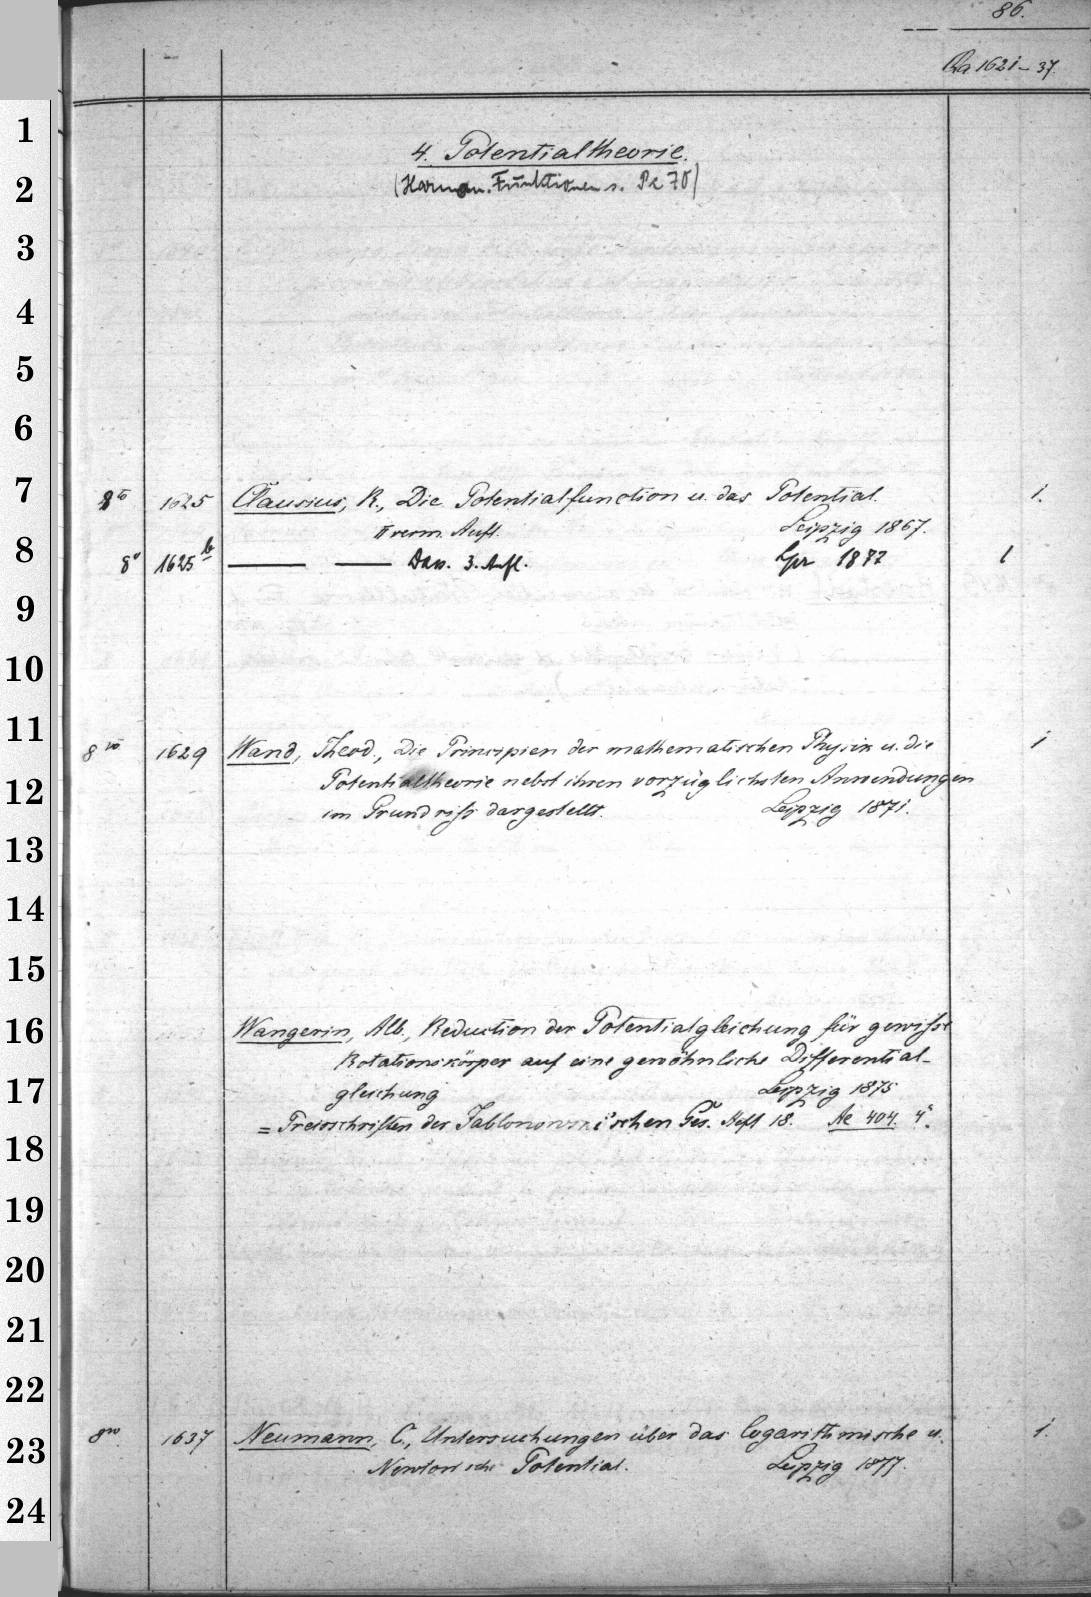 86.
Ra 1621-37.
4. Potentialtheorie.
(Harmon. Funktionen s. Pe 70)
8to 1625 Clausius, R., Die Potentialfunction u. das Potential. 1.
II verm. Aufl. Leipzig 1867.
8o 1625b Dass. 3. Aufl. Lpz 1877 1
8vo 1629 Wand, Theod., Die Principien der mathematischen Physik u. die 1
Potentialtheorie nebst ihren vorzüglichsten Anwendungen
im Grundriss dargestellt. Leipzig 1871.
Wangerin, Alb., Reduction der Potentialgleichung für gewisse
Rotationskörper auf eine gewöhnliche Differential-
gleichung Leipzig 1875
= Preisschriften der Jablonowski'schen Ges. Heft 18. Ae 404. 4o.
8vo 1637 Neumann, C., Untersuchungen über das logarithmische u. 1.
Newton'sche Potential. Leipzig 1877.
1
2
3
4
5
6
7
8
9
10
11
12
13
14
15
16
17
18
19
20
21
22
23
24